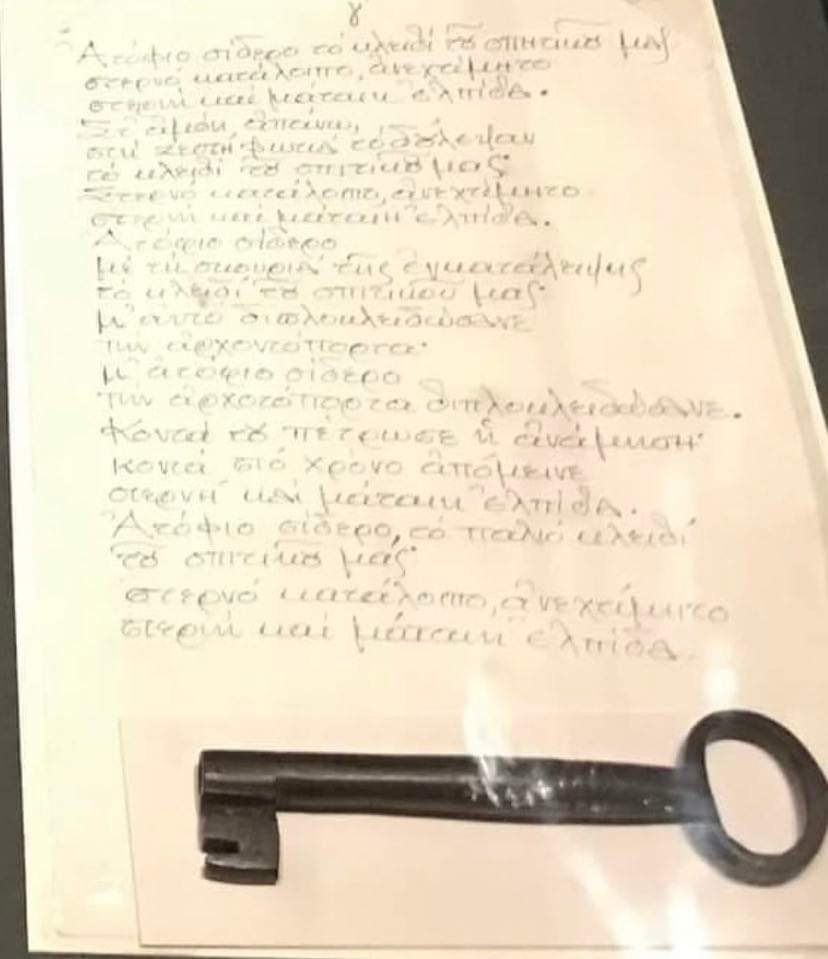 γ
Ἀτόφιο σίδερο τό κλειδί τȣ͂ σπιτικȣ͂ μας
στερνό κατάλοιπο, ἀνεχτίμητο
στερνή καί μάταιη ἐλπίδα.
Στ' ἀμόνι ἀπάνω,
στή ζεστή φωτιά τό δόλεψαν
τό κλειδί τȣ͂ σπιτικȣ͂ μας·
Στερνό κατάλοιπο, ἀνεχτίμητο
στερνή καί μάταιη ἐλπίδα.
Ἀτόφιο σίδερο
μέ τή σκουριά τῆς ἐγκατάλειψης
τό κλειδί τȣ͂ σπιτικοῦ μας·
μ' αὐτό διπλοκλειδώσανε
τήν ἀρχοντόπορτα·
μ' ἀτόφιο σίδερο
τήν ἀρχοτόπορτα διπλοκλειδώσανε.
Κοντά τȣ πέτρωσε ἡ ἀνάμνηση·
κοντά στό χρόνο ἀπόμεινε
στερνή καί μάταιη ἐλπίδα.
Ἀτόφιο σίδερο, τό παλιό κλειδί
τȣ͂ σπιτικȣ͂ μας·
στερνό κατάλοιπο, ἀνεχτίμητο
στερνή καί μάταιη ἐλπίδα.